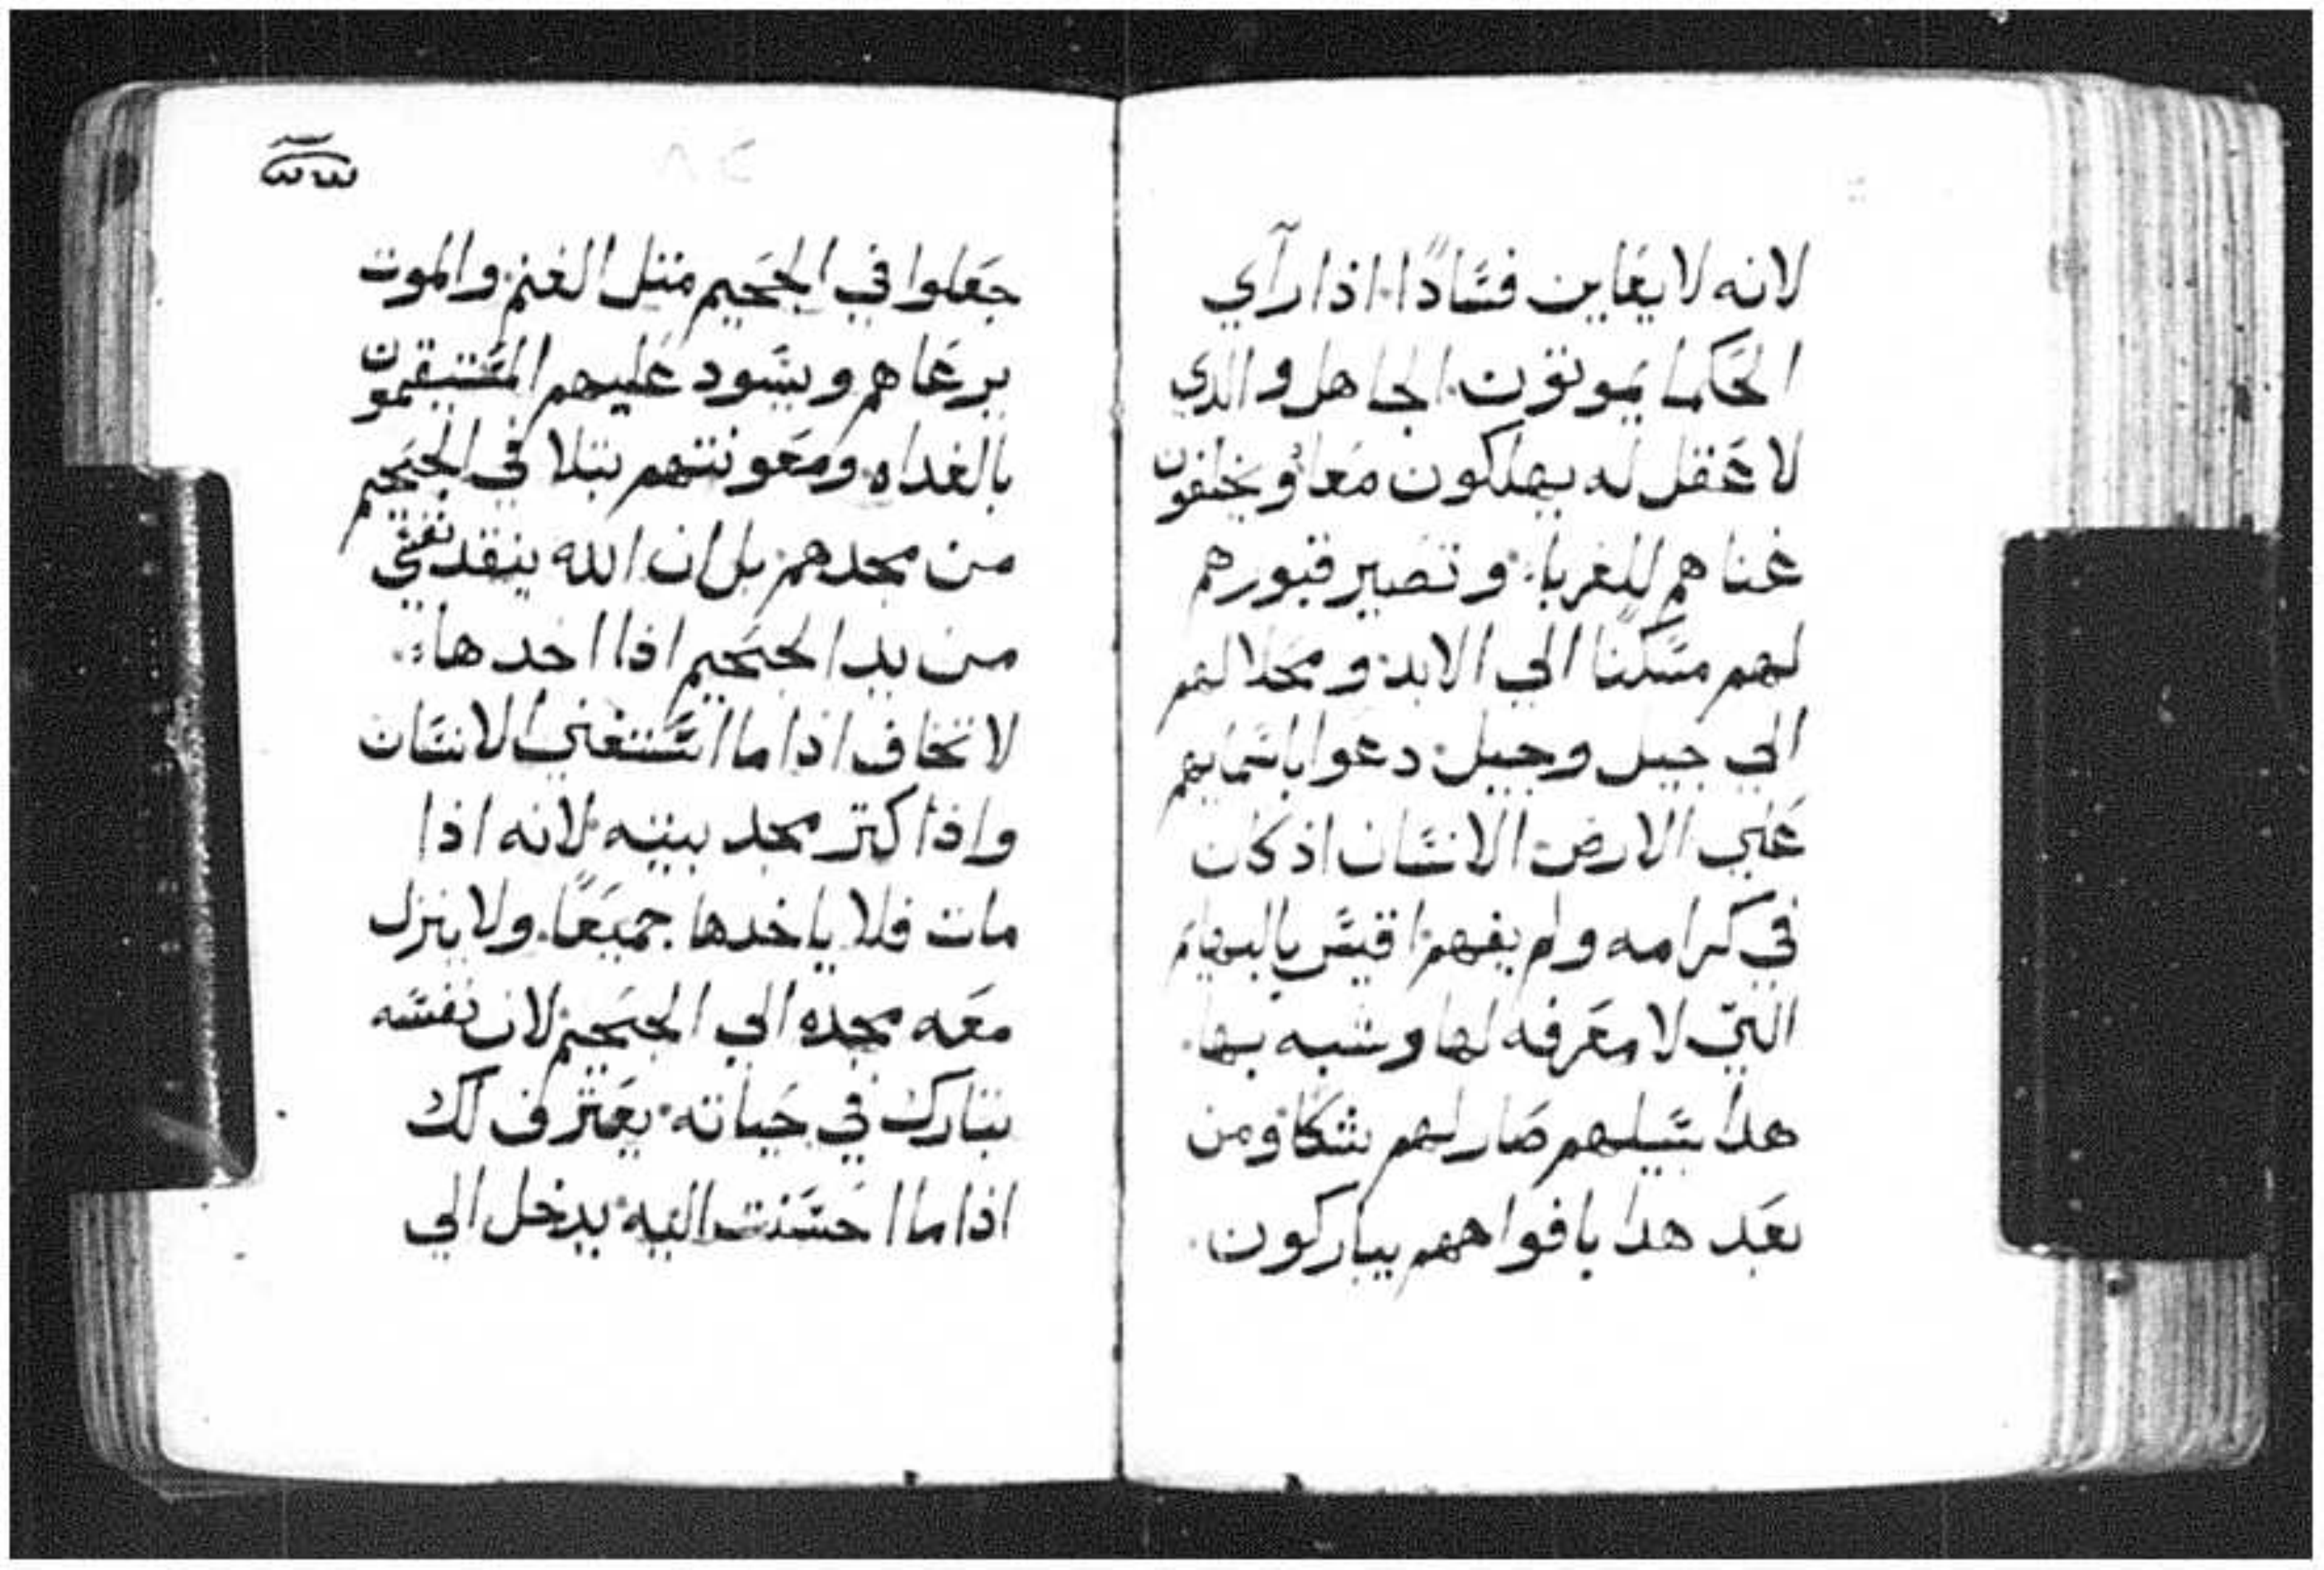 لانه لا يعاين فسادًا. اذا رآي
الحكما يموتون. الجاهل والدي
لا عقل له يهلكون معًا ويخلفون
غناهم للغربا. وتصير قبورهم
لهم مسكنًا الي الابد. ومحلا لهم
الي جيل وجيل. دعوا باسمايهم
علي الارض. الانسان اذ كان
في كرامه ولم يفهم. اقيس بالبهايم
التي لا معرفه لها وشبه بها.
هدا سبيلهم صار لهم شكا ومن
بعد هدا بافواههم يباركون.
جعلوا في الجحيم متل الغنم. والموت
يرعاهم ويسود عليهم المستقيمون
بالغداه. ومعونتهم تبلا في الجحيم
من مجدهم. بل ان الله ينقد نفسي
من يد الجحيم اذا اخدها.
لا تخاف اذا ما استغني الانسان
واذا كتر مجد بيته. لانه اذا
مات فلا ياخدها جميعًا. ولا ينزل
معه مجده الي الجحيم. لان نفسه
تبارك في حياته. يعترف لك
اذا ما احسنت اليه. يدخل الي